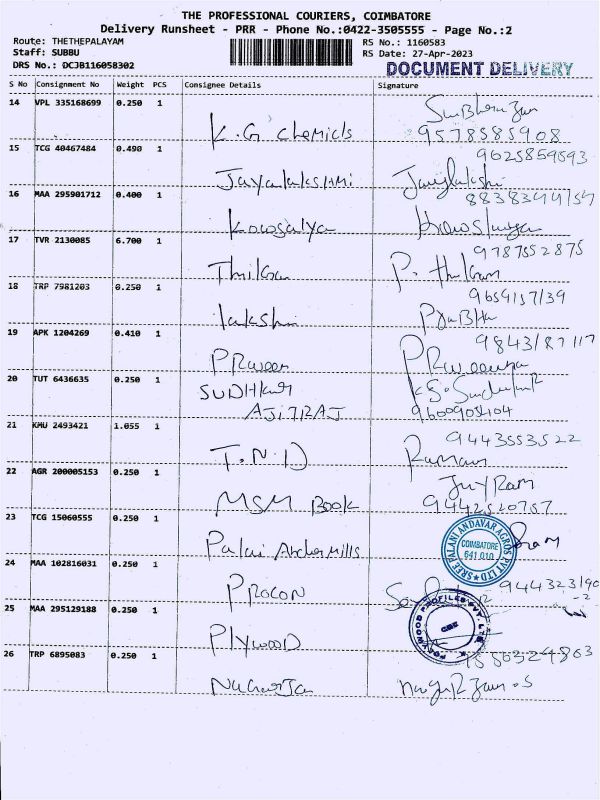 THE PROFESSIONAL COURIERS, COIMBATORE
Delivery Runsheet - PRR - Phone No.:0422-3505555 - Page No.:2
Route: THETHEPALAYAM RS No.: 1160583
Staff: SUBBU RS Date: 27-Apr-2023
DRS No.: DCJB116058302 DOCUMENT DELIVERY
S No Consignment No Weight PCS Consignee Details Signature
14 VPL 335168699 0.250 1
K.G chemicls 9578585908
15 TCG 40467484 0.490 1 9625859593
Jayalakshmi
16 MAA 295901712 0.400 1
Kowsalya
17 TVR 2130085 6.700 1 9787552875
P.
18 TRP 7981203 0.250 1
lakshi
19 APK 1204269 0.410 1
PRaveen
20 TUT 6436635 0.250 1
SUDHKar
AJITRAJ
21 KMU 2493421 1.055 1 9443553522
T.N.D Raman
22 AGR 200005153 0.250 1
MSM Book 9442520757
23 TCG 15060555 0.250 1
SREE PALANI ANDAVAR AGROS PVT LTD
COIMBATORE
641 010
Mills
24 MAA 102816031 0.250 1
PROCON
25 MAA 295129188 0.250 1
PLYWOOD PROFILES PVT. LTD.
CBE
PlywooD
26 TRP 6895083 0.250 1